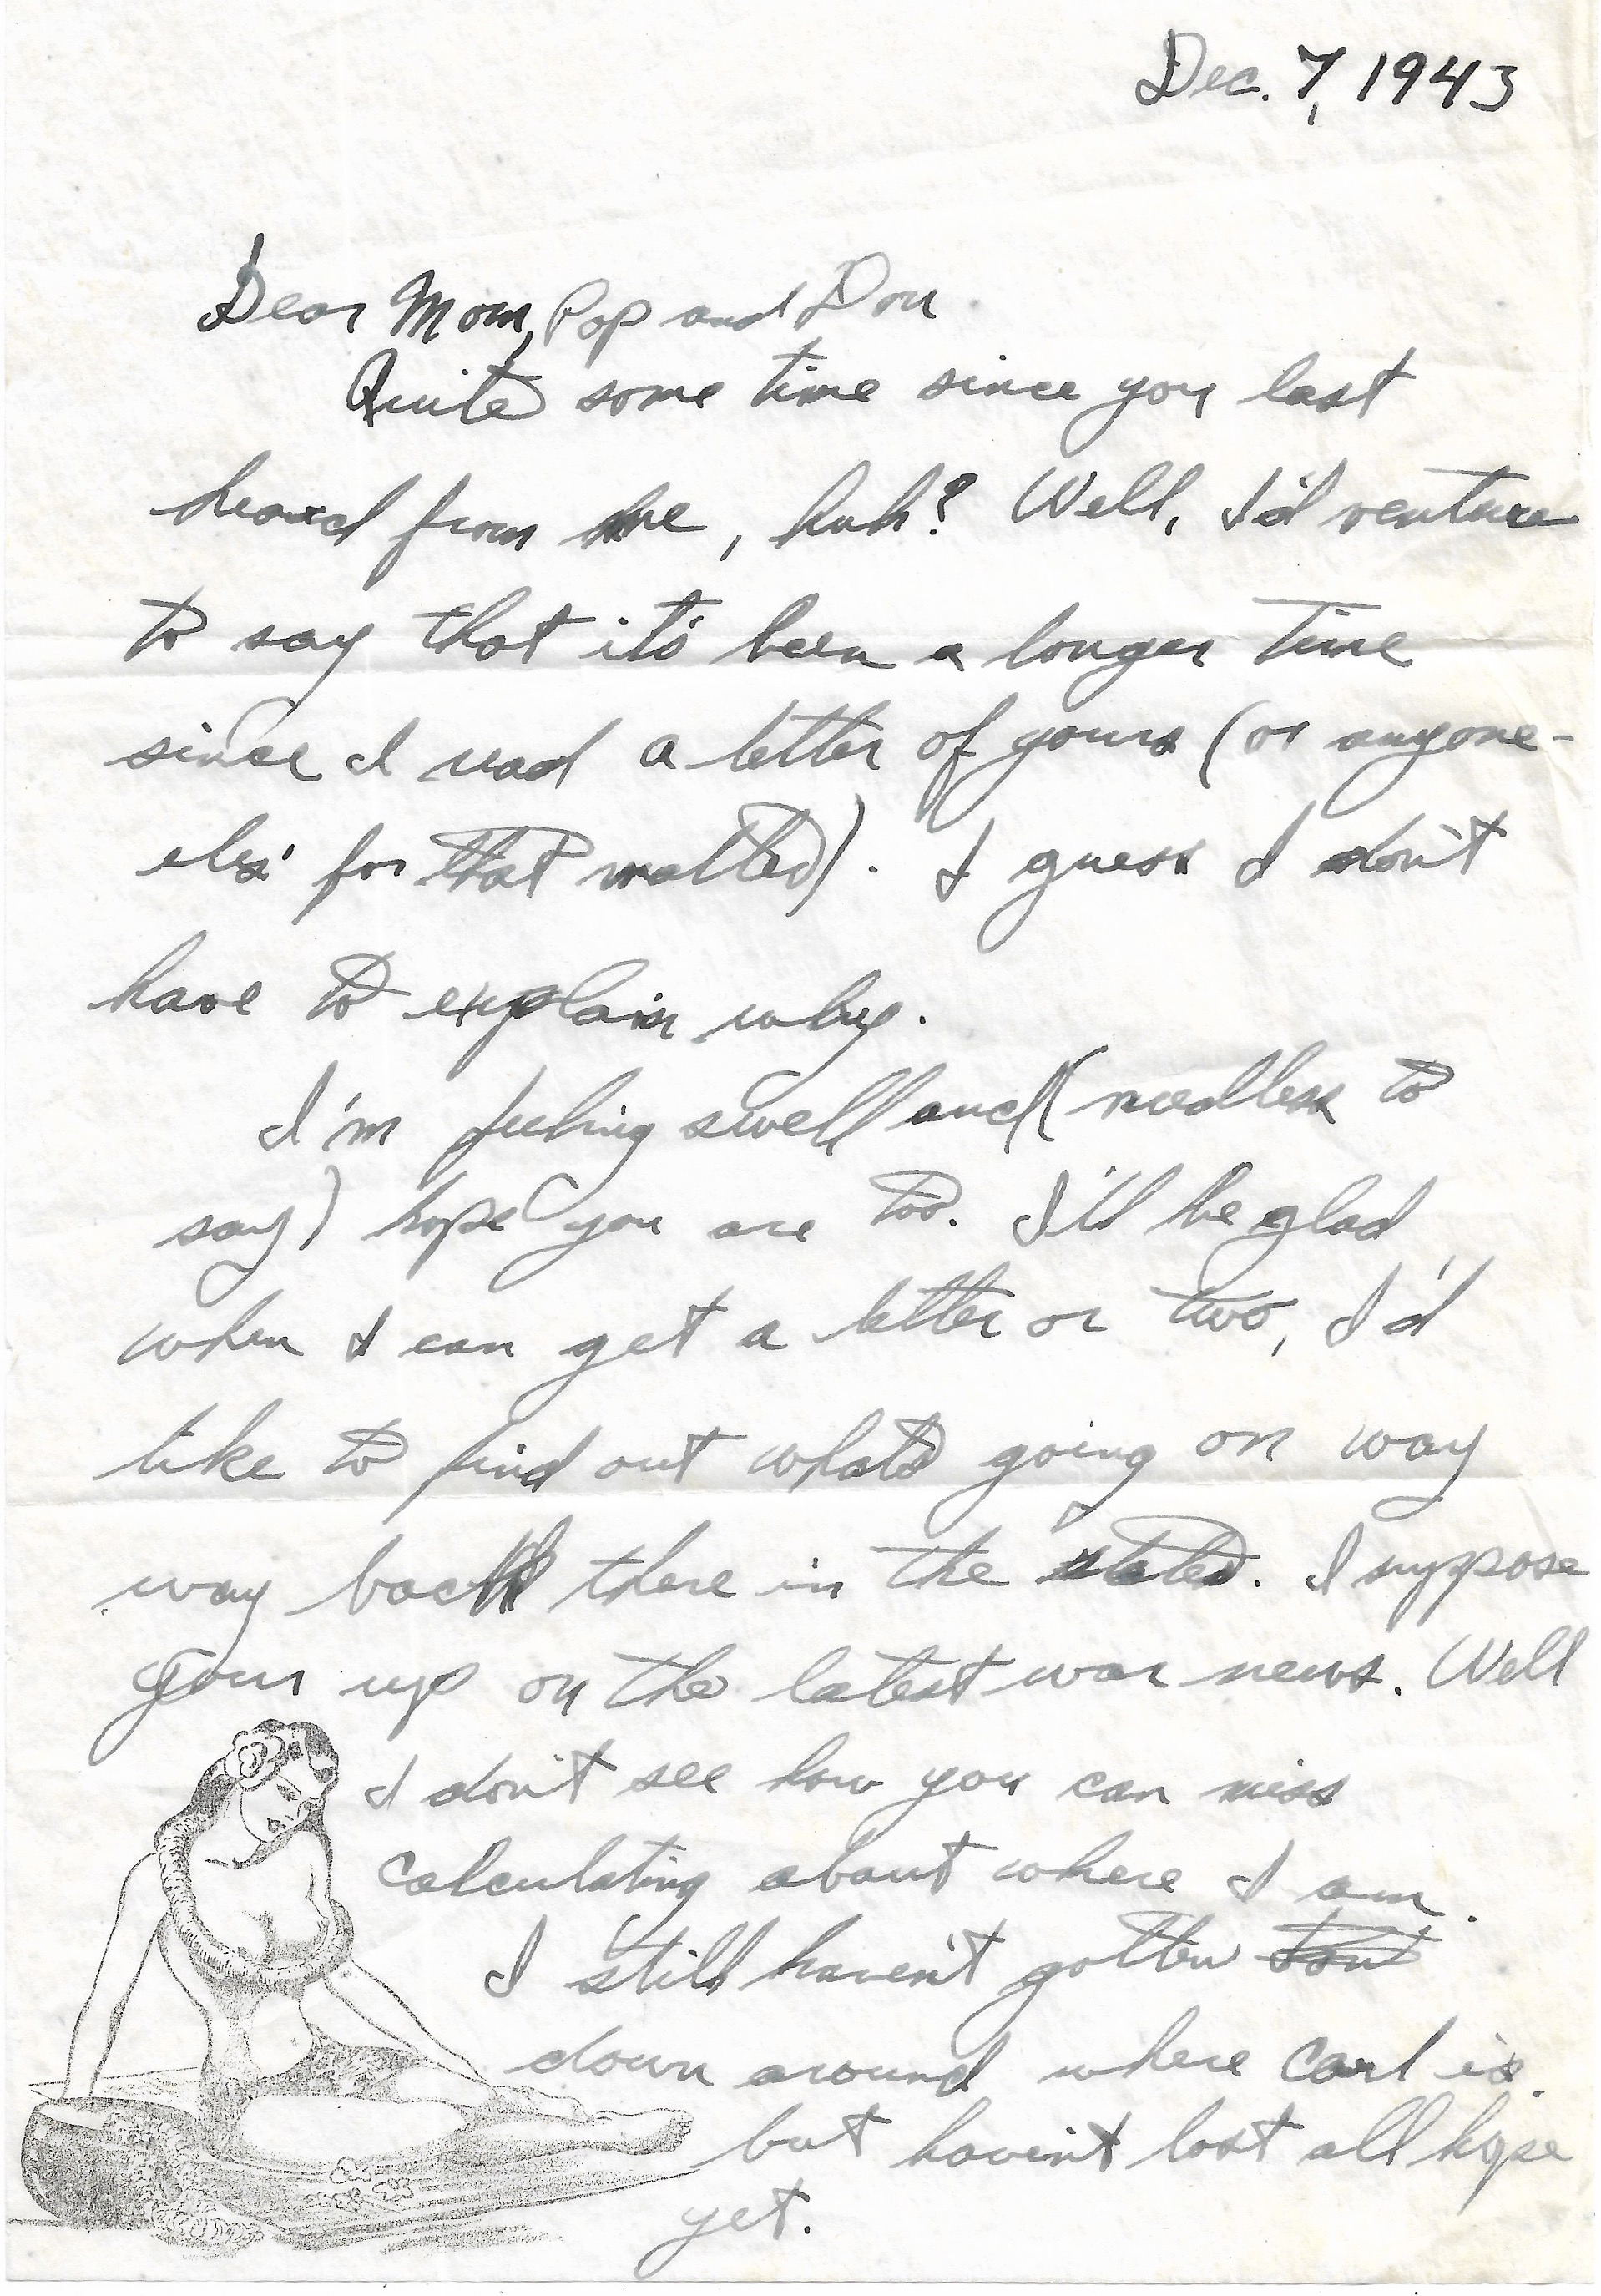 Dec. 7, 1943
Dear Mom, Pop and Don
Quite some time since you last
heard from me, huh? Well, I'd venture
to say that it's been a longer time
since I read a letter of yours (or anyone-
else' for that matter). I guess I don't
have to explain why.
I'm feeling swell and (needless to
say) hope you are too. I'll be glad
when I can get a letter or two, I'd
like to find out what's going on way
way back there in the states. I suppose
your up on the latest war news. Well
I don't see how you can miss
calculating about where I am.
I still haven't gotten
down around where Carl is.
but haven't lost all hope
yet.